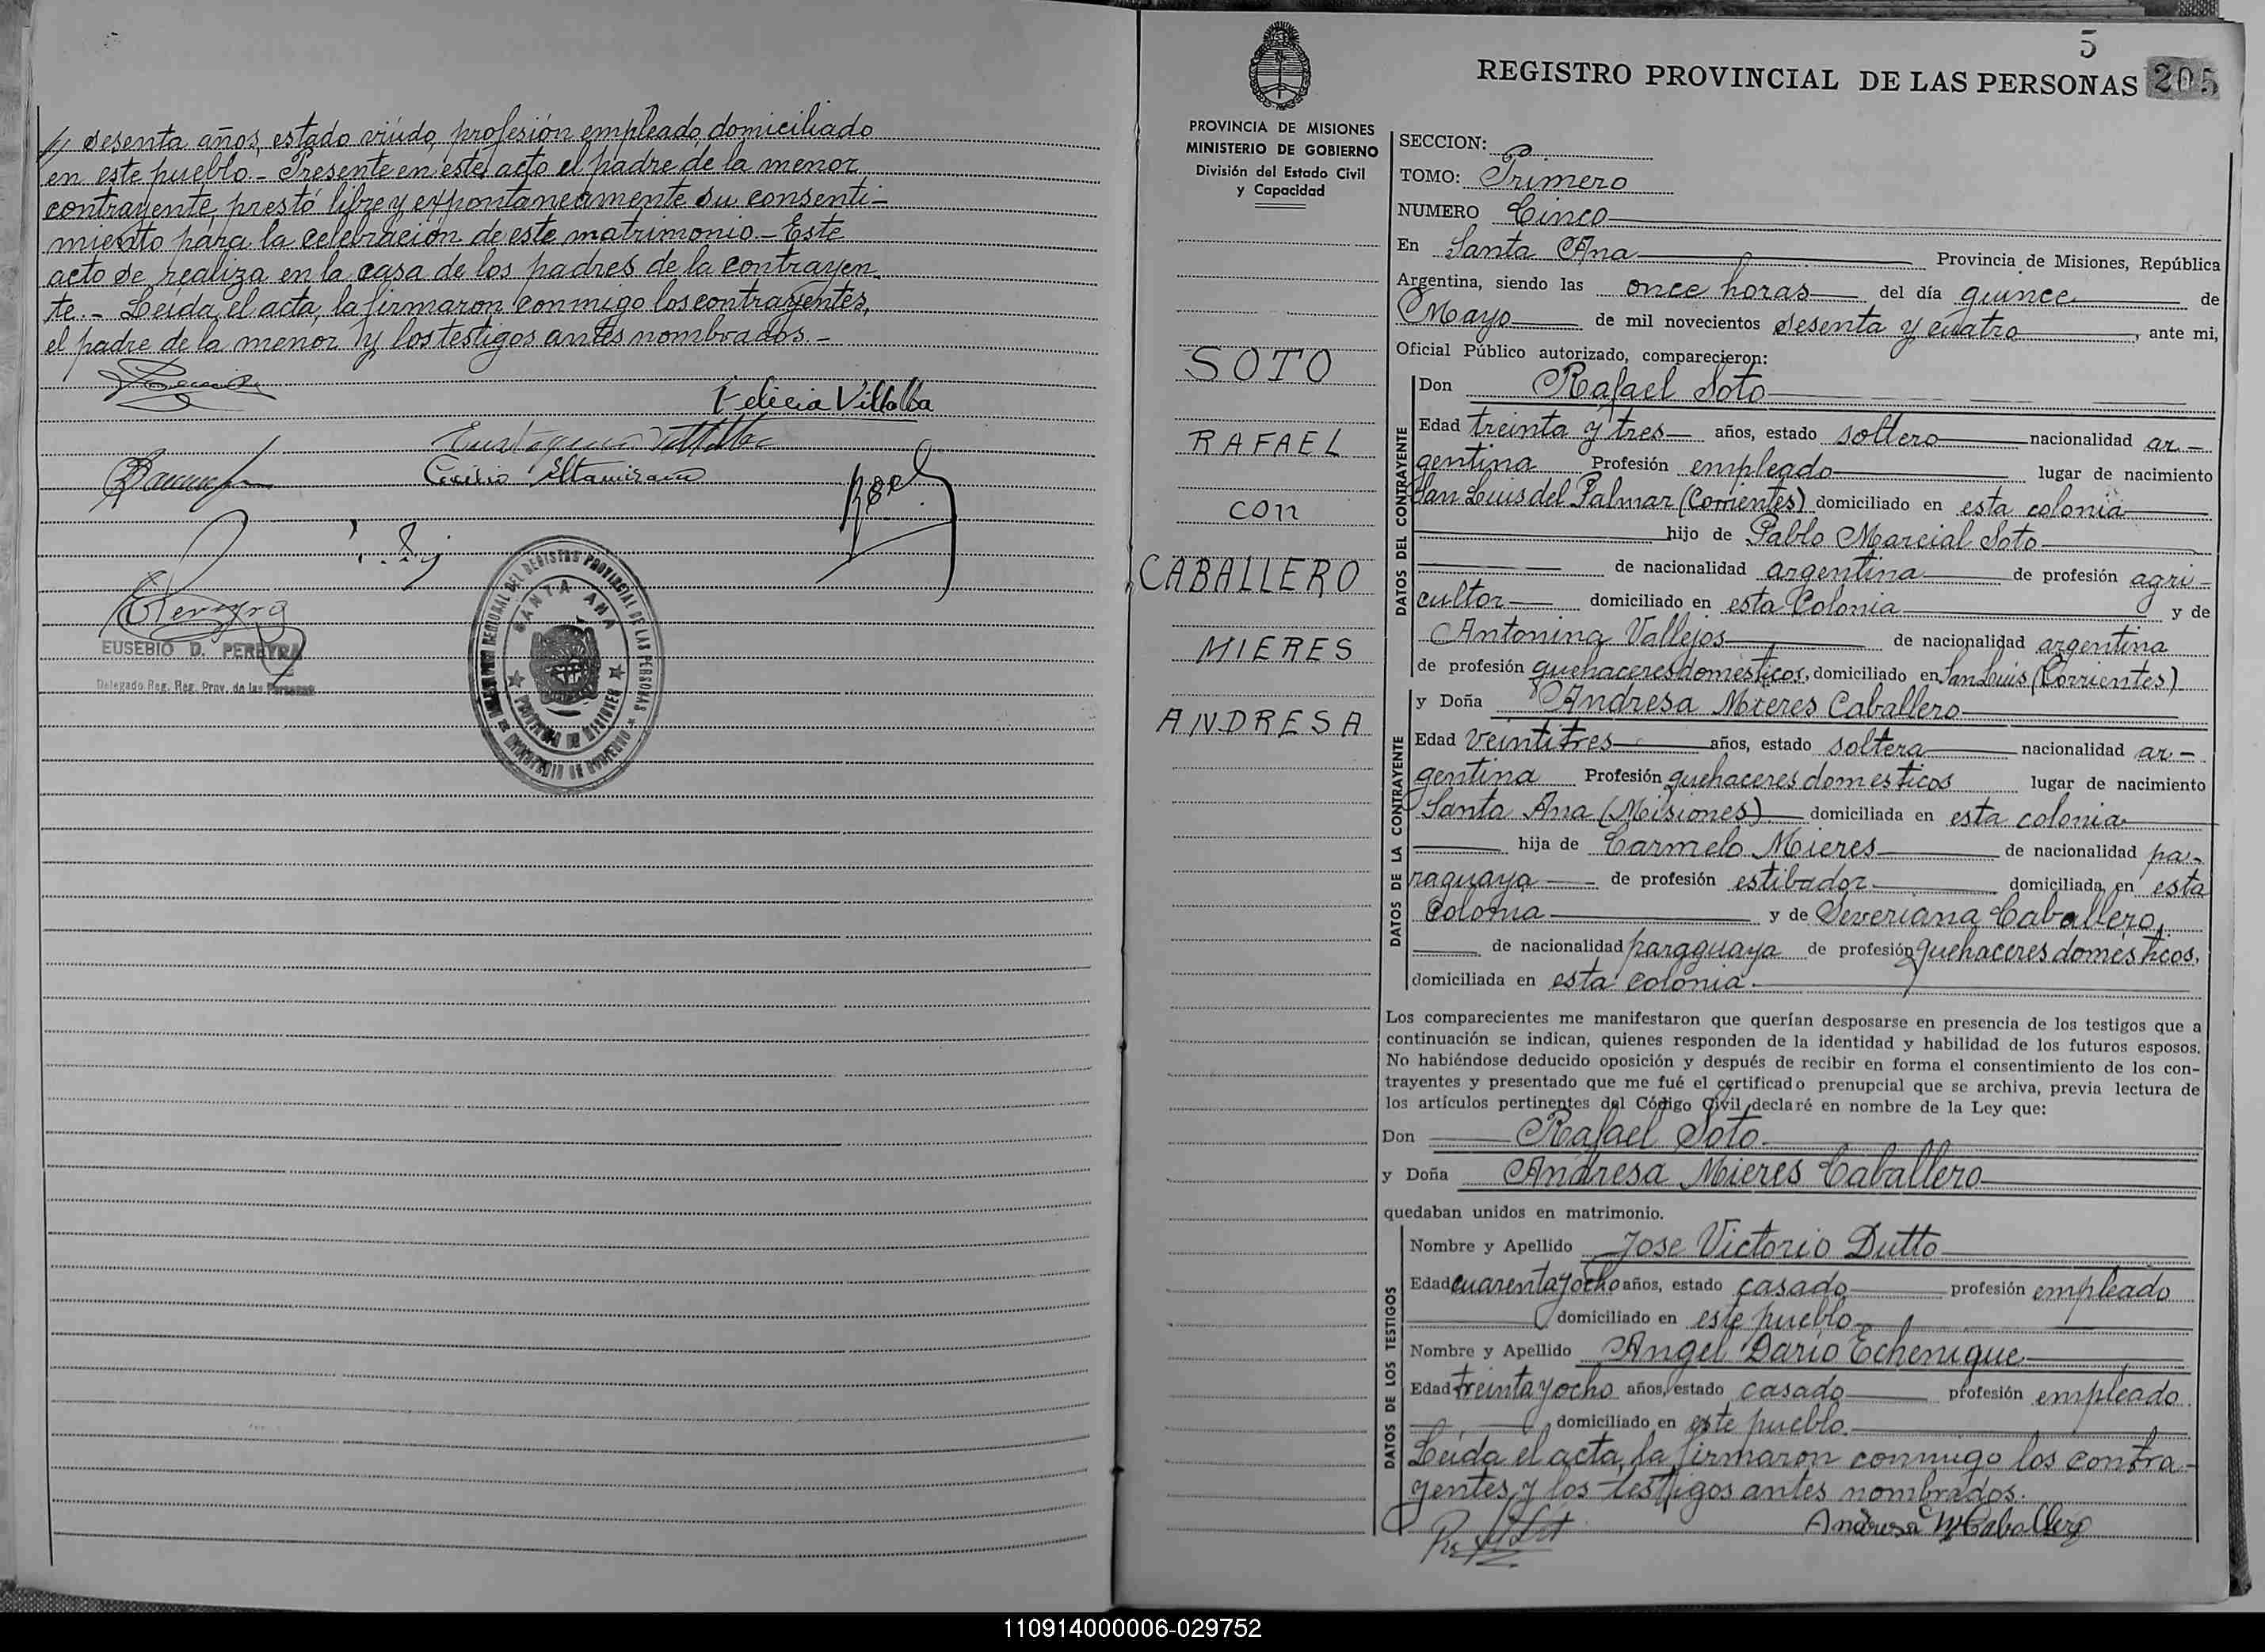 // sesenta años, estado viúdo, profesión empleado, domiciliado
en este pueblo.- Presente en este acto el padre de la menor
contrayente, prestó libre y expontaneamente su consenti-
miento para la celebración de este matrimonio.- Este
acto se realiza en la casa de los padres de la contrayen-
te.- Leída el acta, la firmaron conmigo los contrayentes,
el padre de la menor y los testigos antes nombrados.-
Felicia Villalba
Cecilio Altamirano
EUSEBIO D. PEREYRA
Delegado Reg. Reg. Prov. de las Personas
SANTA ANA
5
REGISTRO PROVINCIAL DE LAS PERSONAS 205
PROVINCIA DE MISIONES
MINISTERIO DE GOBIERNO
División del Estado Civil
y Capacidad
SOTO
RAFAEL
con
CABALLERO
MIERES
ANDRESA
SECCION:
TOMO: Primero
NUMERO Cinco
En Santa Ana Provincia de Misiones, República
Argentina, siendo las once horas del día quince de
Mayo de mil novecientos sesenta y cuatro, ante mi,
Oficial Público autorizado, comparecieron:
DATOS DEL CONTRAYENTE
Don Rafael Soto
Edad treinta y tres años, estado soltero nacionalidad ar-
gentina Profesión empleado lugar de nacimiento
San Luis del Palmar (Corrientes) domiciliado en esta colonia
hijo de Pablo Marcial Soto
de nacionalidad argentina de profesión agri-
cultor domiciliado en esta Colonia y de
Antonina Vallejos de nacionalidad argentina
de profesión quehaceres domesticos, domiciliado en San Luis (Corrientes)
DATOS DE LA CONTRAYENTE
y Doña Andresa Mieres Caballero
Edad veintitres años, estado soltera nacionalidad ar-
gentina Profesión quehaceres domesticos lugar de nacimiento
Santa Ana (Misiones) domiciliada en esta colonia
hija de Carmelo Mieres de nacionalidad pa-
raguaya de profesión estibador domiciliada en esta
Colonia y de Severiana Caballero,
de nacionalidad paraguaya de profesión quehaceres domésticos,
domiciliada en esta colonia.
Los comparecientes me manifestaron que querían desposarse en presencia de los testigos que a
continuación se indican, quienes responden de la identidad y habilidad de los futuros esposos.
No habiéndose deducido oposición y después de recibir en forma el consentimiento de los con-
trayentes y presentado que me fué el certificado prenupcial que se archiva, previa lectura de
los artículos pertinentes del Código Civil declaré en nombre de la Ley que:
Don Rafael Soto
y Doña Andresa Mieres Caballero
quedaban unidos en matrimonio.
DATOS DE LOS TESTIGOS
Nombre y Apellido Jose Victorio Dutto
Edad cuarenta y ocho años, estado casado profesión empleado
domiciliado en este pueblo
Nombre y Apellido Angel Dario Echenique
Edad treinta y ocho años, estado casado profesión empleado
domiciliado en este pueblo.
Leida el acta, la firmaron conmigo los contra-
yentes y los testigos antes nombrados.
Andresa M Caballero
110914000006-029752